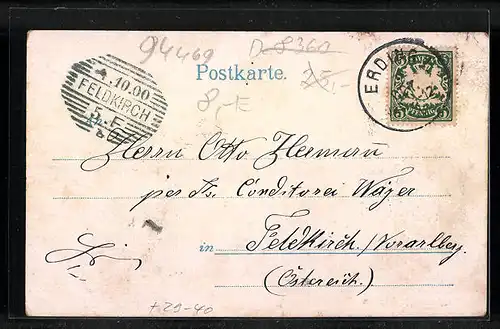 94469
D-8360
Postkarte.
25,-
8,-E
10.00
FELDKIRCH
ERDING
5
5
PFENNIG
Herrn Otto Hermann
per Fr. Conditorei Wäger
in Feldkirch/Vorarlberg.
(Österreich.)
+29-40